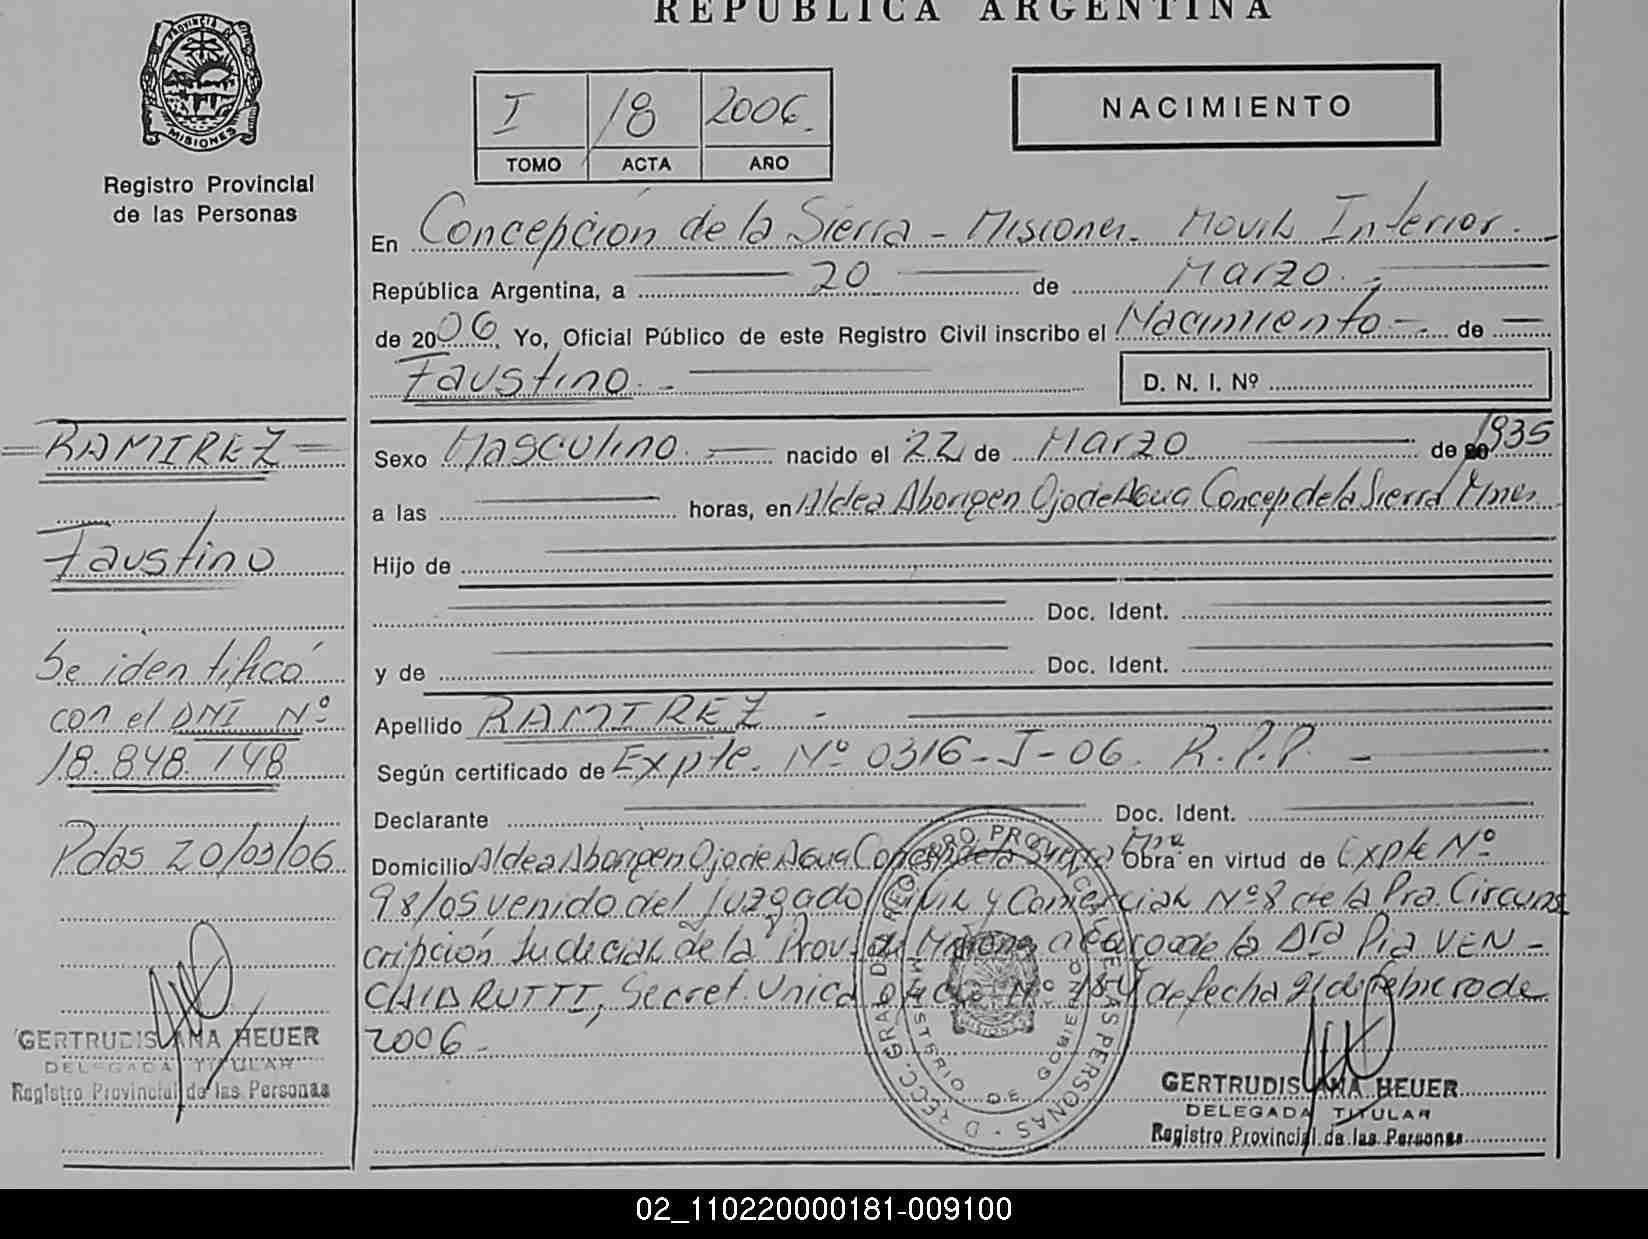 REPUBLICA ARGENTINA
PROVINCIA DE
MISIONES
Registro Provincial
de las Personas
I 18 2006.
TOMO ACTA AÑO
NACIMIENTO
En Concepción de la Sierra - Misiones. Movil Interior.
República Argentina, a 20 de Marzo
de 2006, Yo, Oficial Público de este Registro Civil inscribo el Nacimiento de
Faustino.
D. N. I. Nº
RAMIREZ
Faustino
Se identificó
con el DNI Nº
18.848.148
Pdas 20/03/06
GERTRUDIS ANA HEUER
DELEGADA TITULAR
Registro Provincial de las Personas
Sexo Masculino. nacido el 22 de Marzo de 1935
a las horas, en Aldea Aborigen Ojo de Agua Concep de la Sierra Mnes
Hijo de
Doc. Ident.
y de Doc. Ident.
Apellido RAMIREZ -
Según certificado de Expte. Nº 0316-J-06. R.P.P.
Declarante Doc. Ident.
Domicilio Aldea Aborigen Ojo de Agua Concep de la Sierra Obra en virtud de Expte Nº
98/05 venido del Juzgado Civil y Comercial Nº 8 de la Pra. Circuns
cripción Judicial de la Prov. de Misiones a cargo de la Dra Pia VEN-
CHIARUTTI, Secret. Unica de fecha 21 de febrero de
2006.-
MINISTERIO DE GOBIERNO
GERTRUDIS ANA HEUER
DELEGADA TITULAR
Registro Provincial de las Personas
02_110220000181-009100